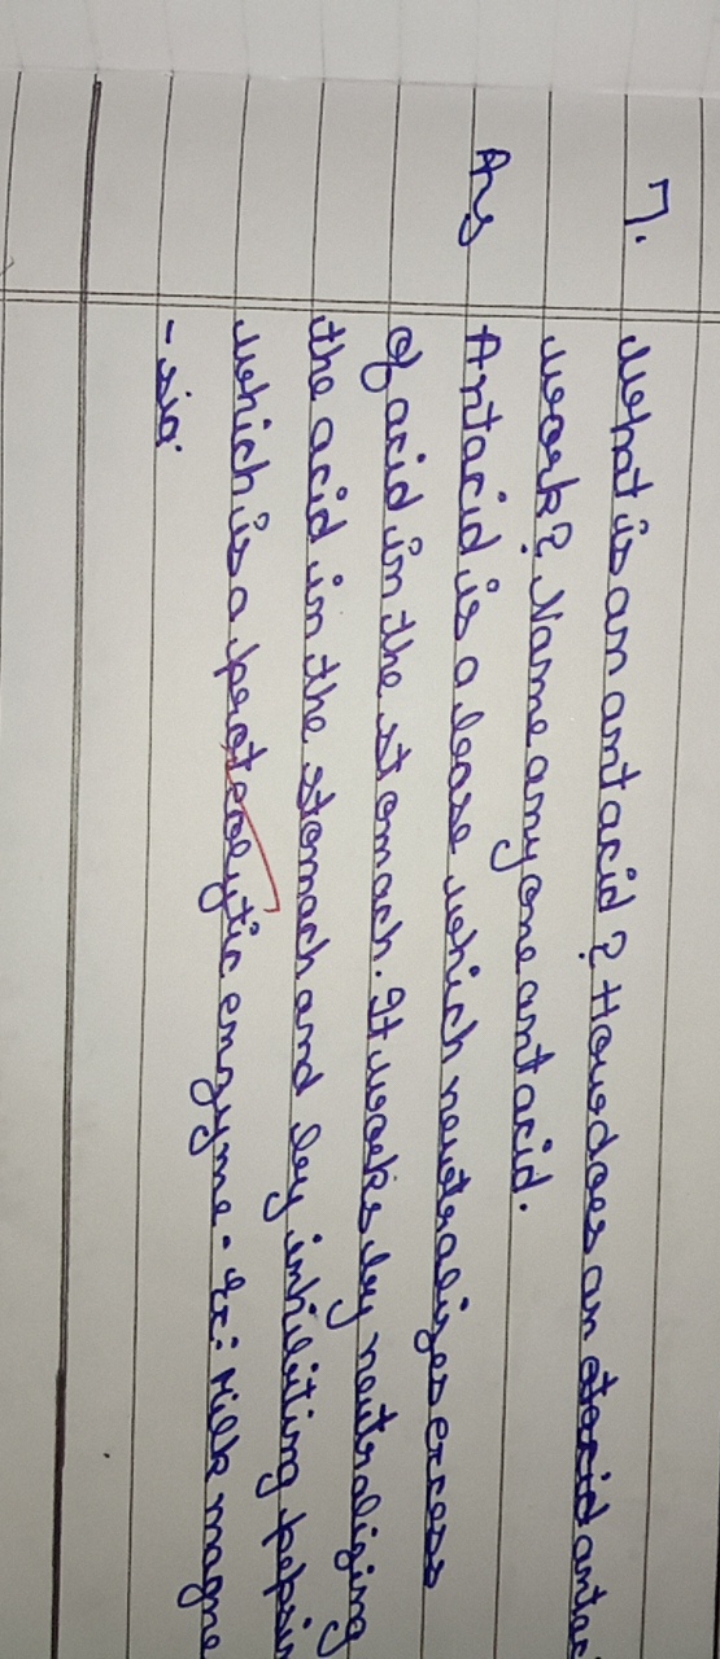 7. What is an antacid? How does an antac
work? Name any one antacid.
Ans Antacid is a base which neutralizes excess
of acid in the stomach. It works by neutralizing
the acid in the stomach and by inhibiting pepsin
which is a proteolytic enzyme. Ex: Milk magne
-sia.